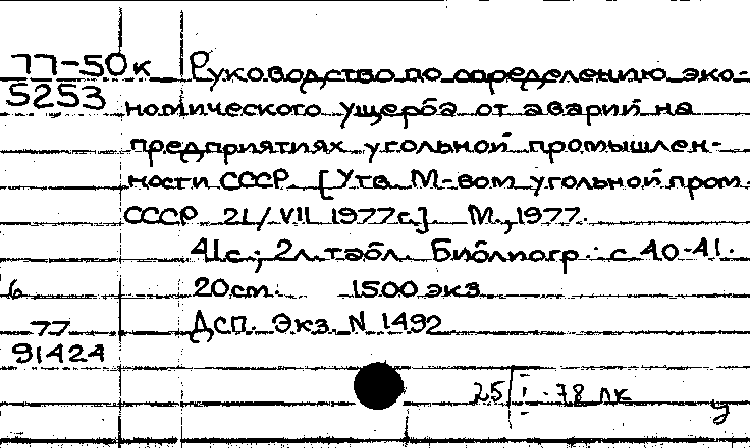 77-50к Руководство по определению эко-
5253 номического ущерба от аварий на
предприятиях угольной промышлен-
ности СССР. [Утв. М-вом угольной пром.
СССР 21/VII 1977г.]. М., 1977.
41с.; 2л. табл. Библиогр.: с 40-41.
6 20см. 1500 экз
77 ДСП. Экз. N 1492
91424
25/I-78 лк
у